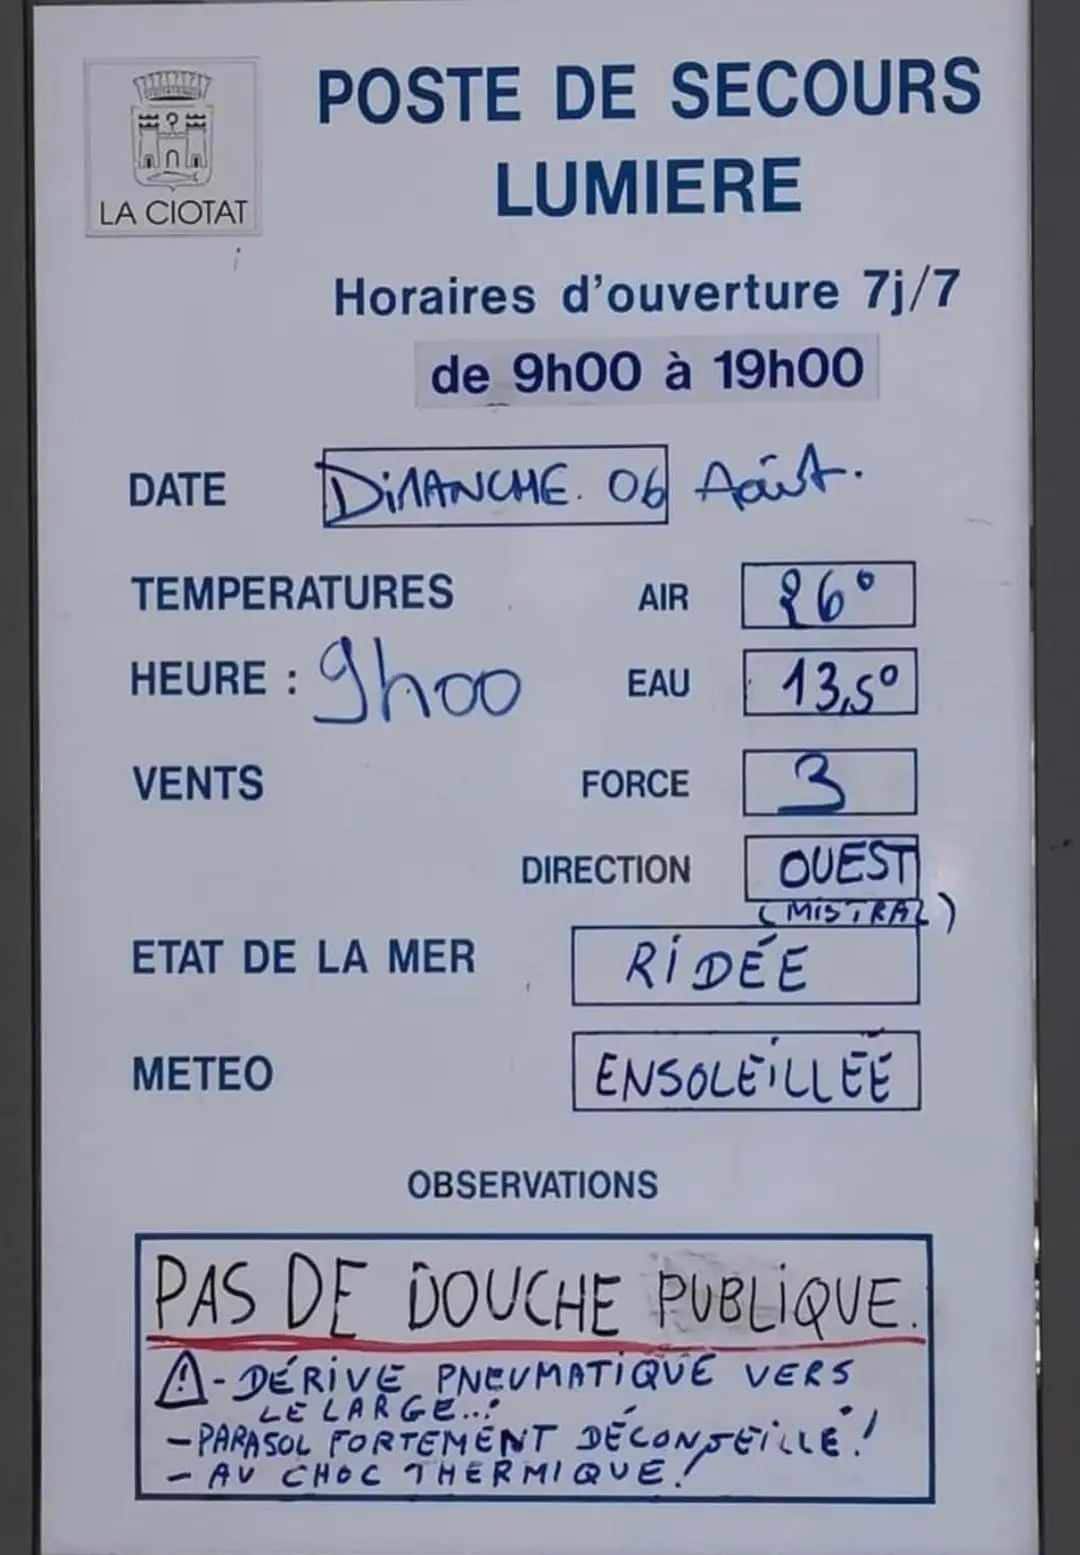 POSTE DE SECOURS
LUMIERE
LA CIOTAT
Horaires d'ouverture 7j/7
de 9h00 à 19h00
DATE DIMANCHE. 06 Août.
TEMPERATURES AIR 26°
HEURE : 9h00 EAU 13,5°
VENTS FORCE 3
DIRECTION OUEST
(MISTRAL)
ETAT DE LA MER RIDÉE
METEO ENSOLEILLÉE
OBSERVATIONS
PAS DE DOUCHE PUBLIQUE.
⚠ - DÉRIVE PNEUMATIQUE VERS
LE LARGE..!
- PARASOL FORTEMENT DÉCONSEILLÉ!
- AU CHOC THERMIQUE!